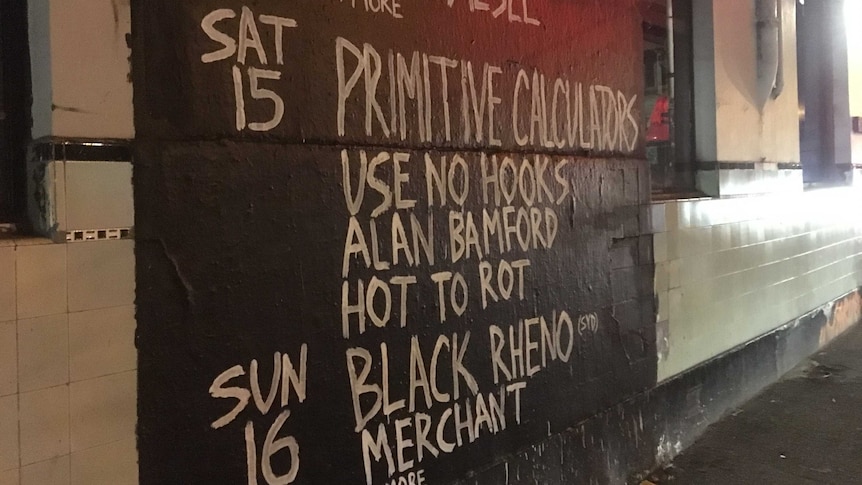 MORE
SAT
15
PRIMITIVE CALCULATORS
USE NO HOOKS
ALAN BAMFORD
HOT TO ROT
SUN
16
BLACK RHENO (SYD)
MERCHANT
MORE